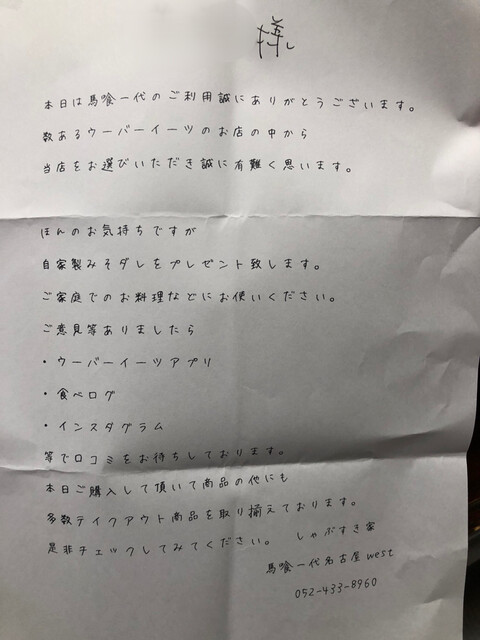 様
本日は馬喰一代のご利用誠にありがとうございます。
数あるウーバーイーツのお店の中から
当店をお選びいただき誠に有難く思います。
ほんのお気持ちですが
自家製みそダレをプレゼント致します。
ご家庭でのお料理などにお使いください。
ご意見等ありましたら
・ウーバーイーツアプリ
・食べログ
・インスタグラム
等で口コミをお待ちしております。
本日ご購入して頂いて商品の他にも
多数テイクアウト商品を取り揃えております。
是非チェックしてみてください。 しゃぶすき家
馬喰一代名古屋west
052-433-8960